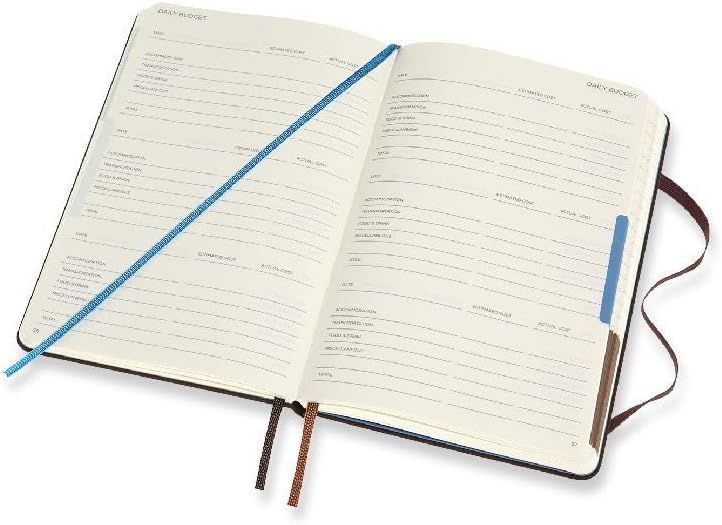 DAILY BUDGET
DATE ESTIMATED COST ACTUAL COST
ACCOMMODATION
TRANSPORTATION
FOOD & DRINK
MISCELLANEOUS
TOTAL
DATE ESTIMATED COST ACTUAL COST
ACCOMMODATION
TRANSPORTATION
FOOD & DRINK
MISCELLANEOUS
TOTAL
DATE ESTIMATED COST ACTUAL COST
ACCOMMODATION
TRANSPORTATION
FOOD & DRINK
MISCELLANEOUS
TOTAL
36
DAILY BUDGET
DATE ESTIMATED COST ACTUAL COST
ACCOMMODATION
TRANSPORTATION
FOOD & DRINK
MISCELLANEOUS
TOTAL
DATE ESTIMATED COST ACTUAL COST
ACCOMMODATION
TRANSPORTATION
FOOD & DRINK
MISCELLANEOUS
TOTAL
DATE ESTIMATED COST ACTUAL COST
ACCOMMODATION
TRANSPORTATION
FOOD & DRINK
MISCELLANEOUS
TOTAL
37